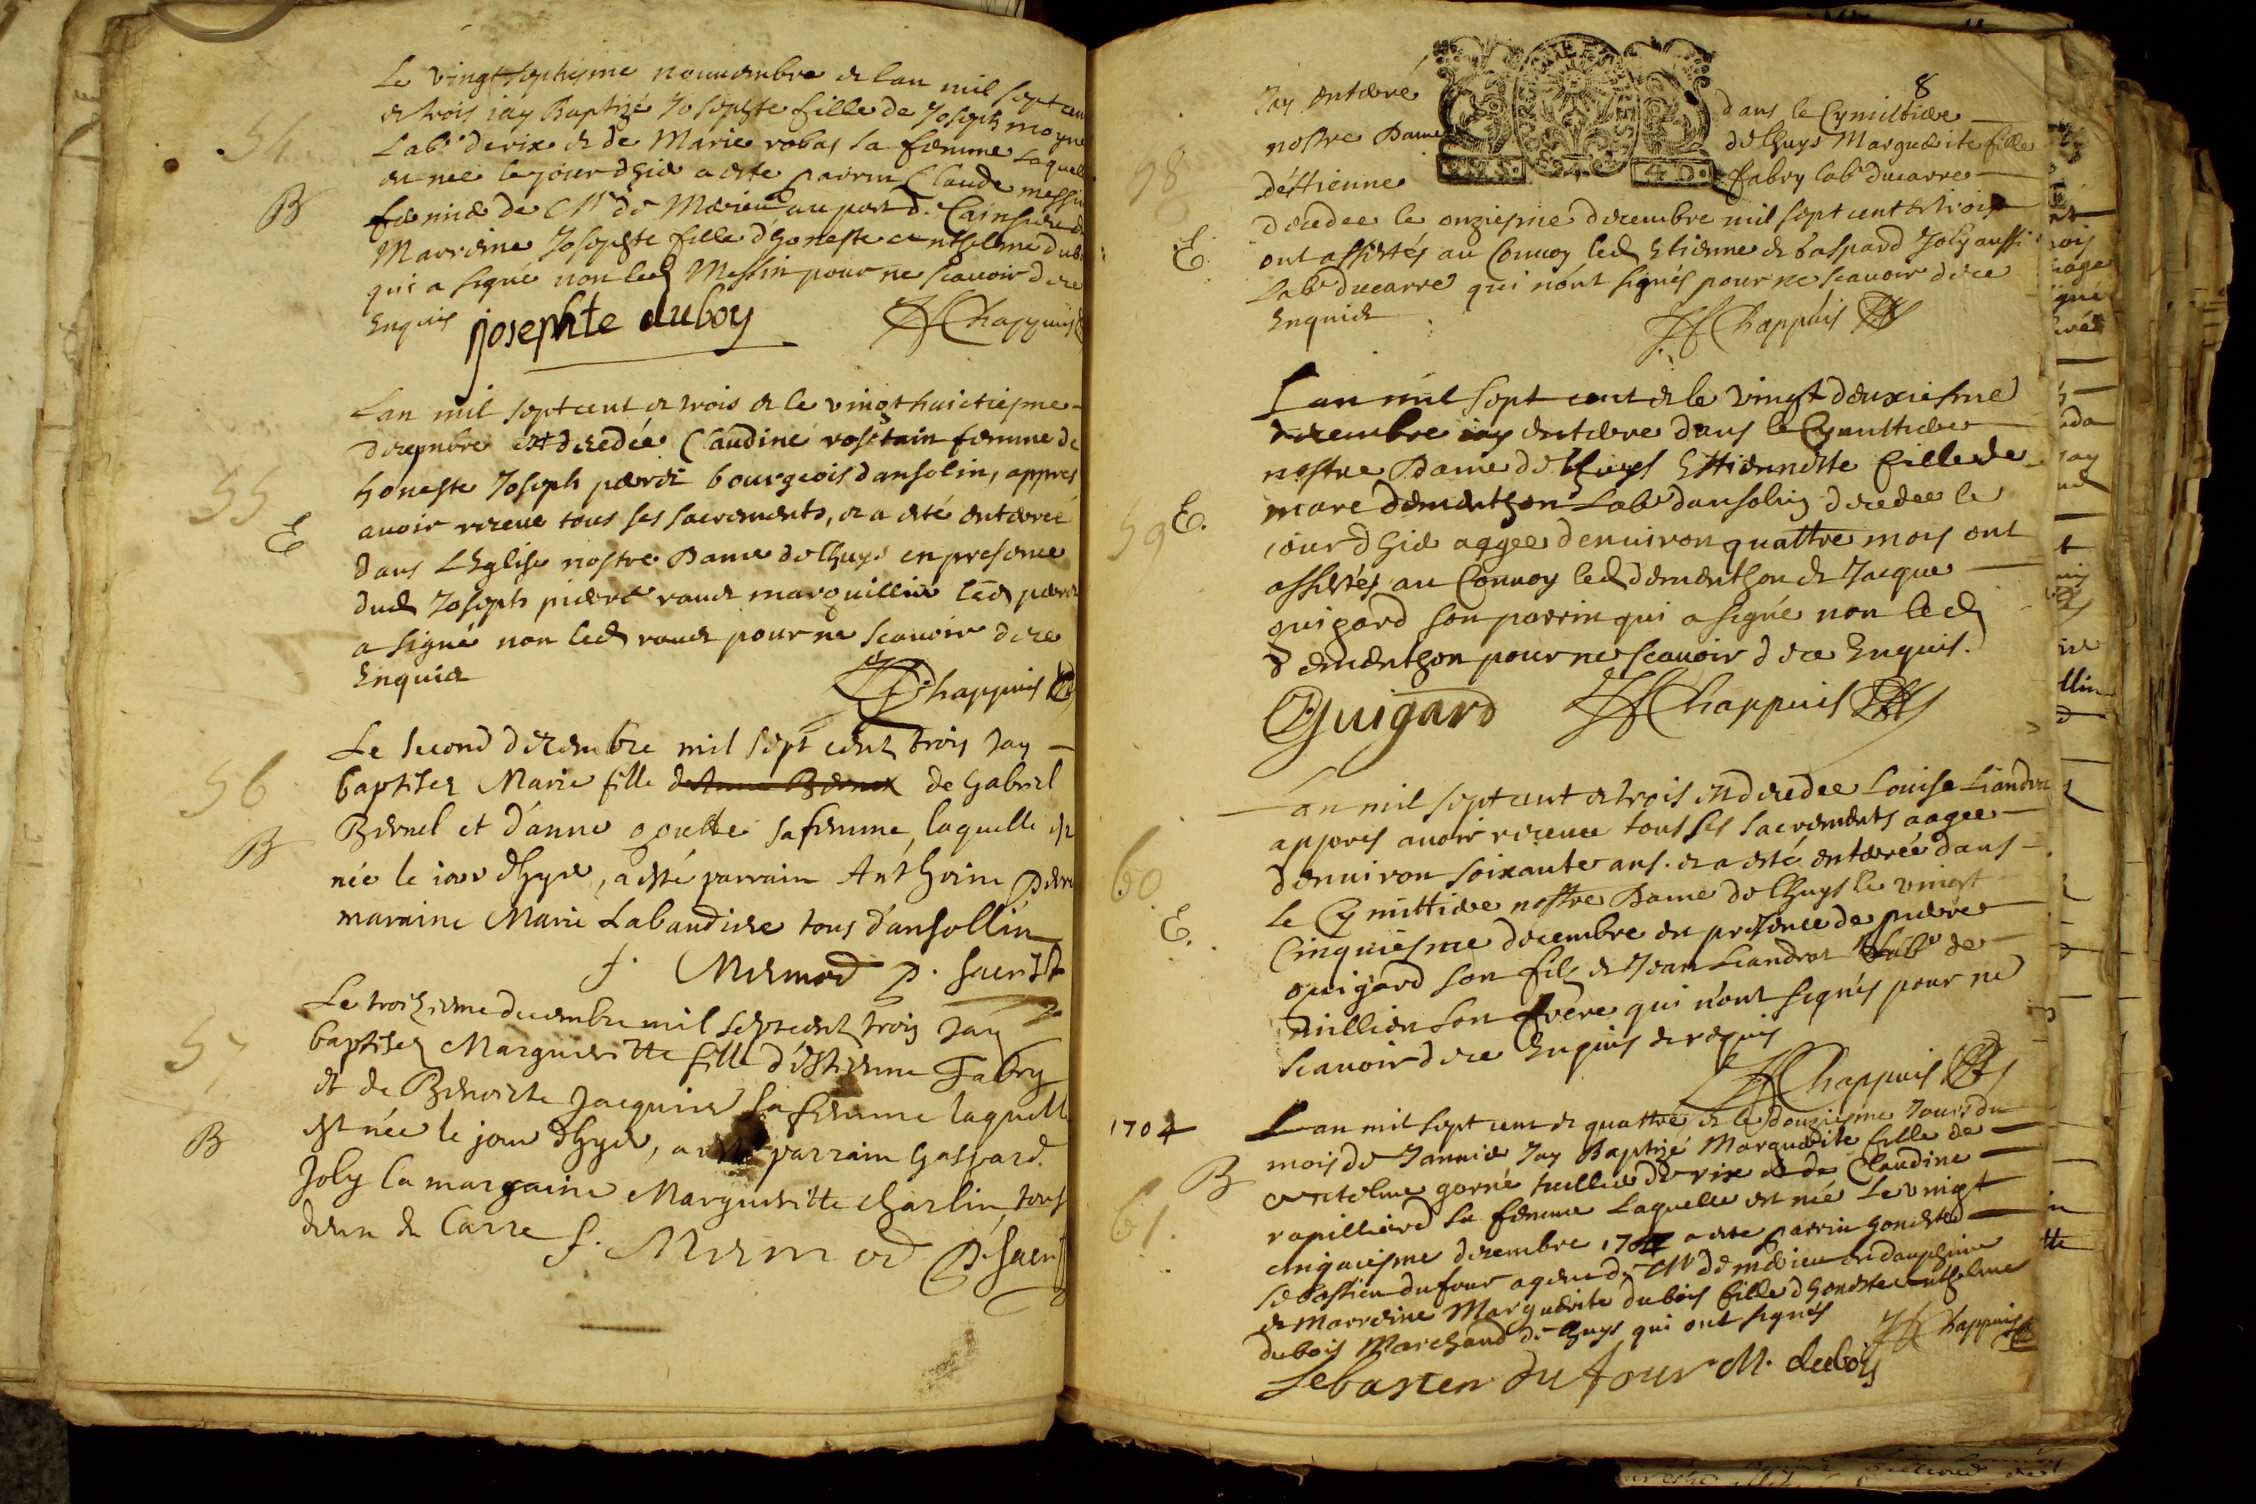 54
B
Le vingtseptiesme nouuembre et lan mil sept cent
et trois jay Baptizé Josephte fille de Joseph moyne
Labr derix et de Marie robas sa femme Laquelle
est née le jourdhuier a esté parrin Claude messin
de Mr de au port de
Marreine Josephte fille d'honeste anthelme dubois
qui a signé non led Messin pour ne scauoir de ce
Enquis josephte duboy Chappuis
55
E
Lan mil sept cent et trois et le vingthuictiesme
decembre est decedée Claudine rosetain femme de
honeste Joseph bourgeois dansolin, appres
auoir receue tous ses sacrements, et a esté enterrée
dans L'Eglise nostre Dame de lhuys en presence
dud Joseph et pierre marguillier led
a signé non led pour ne scauoir de ce
Enquis Chappuis
56
B
Le second decembre mil sept cent trois Jay
baptisez Marie fille de Gabriel
Bernel et d'anne goutte sa femme, laquelle est
née le iour dhyer, a esté parrain Anthoine
maraine Marie Labaudiere tous d'ansollin
f. Mermod p. sacrist
57
B
Le troisieme decembre mil sept cent trois Jay
baptisez Margueritte fille d'éstienne Fabry
et de Benoiste Jacquier sa femme laquelle
est née le jour dhyer, a esté parrain Gaspard
Joly la marraine Margueritte charlin tous
deux de Carre f. Mermod p. sacrist
8
58
E
Jay enterré dans le Cymittiere
nostre Dame de lhuys Marguerite fille
déstienne fabry labr ducarre
decedee le onziesme decembre mil sept cent et trois
ont assistés au Conuoy led Estienne et Gaspard Joly aussi
Labr ducarre qui n'ont signés pour ne scauoir de ce
Enquis Chappuis
59
E.
Lan mil sept cent et le vingt deuxiesme
decembre jay enterre dans le Cymittiere
nostre Dame de lhuys Estiennette fille de
marc dementhon Labr dansolin decedee le
jourdhier aggee denuiron quattre mois ont
assistés au Conuoy led dementhon et Jacque
guigard son parrin qui a signé non led
dementhon pour ne scauoir de ce Enquis.
Guigard Chappuis
60
E.
Lan mil sept cent et trois est decedee Louise Liandrat
appres auoir receue tous ses sacrements aagee
denuiron soixante ans. et a esté enterrée dans
le Cymittiere nostre Dame de lhuys le vingt
Cinquiesme decembre en presence de pierre
guigard son fils et Jean Liandrat Labr de
millieu son frère qui n'ont signés pour ne
scauoir de ce Enquis et requis
Chappuis
1704
B
61.
Lan mil sept cent et quattre et le douziesme Jours du
mois de Januier Jay Baptizé Marguerite fille de
anthelme gorné tuillier de rix et de Claudine
rapilliard sa femme Laquelle est née Le vingt
cinquiesme decembre 1704 a esté parrin honeste
sebastien dufour agent de Mr de merieu en dauphine
et marreine Marguerite dubois fille dhoneste anthelme
dubois Marchand de lhuys qui ont signés Chappuis
sebastien dufour M. dubois